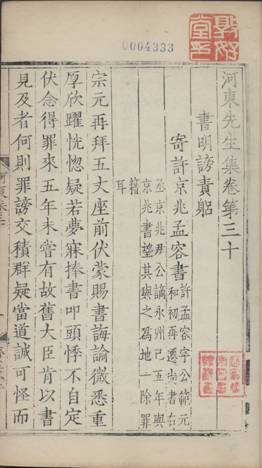 0004333
河東先生集卷第三十
書明謗責躬
寄許京兆孟容書
許孟容字公範元
和初再遷尚書右
丞京兆尹公謫永州已五年與
京兆書望其與之為地一除罪
籍
耳
宗元再拜五丈座前伏蒙賜書誨諭微悉重
厚欣躍怳惚疑若夢寐捧書叩頭悸不自定
伏念得罪來五年未嘗有故舊大臣肯以書
見及者何則罪謗交積群疑當道誠可怪而